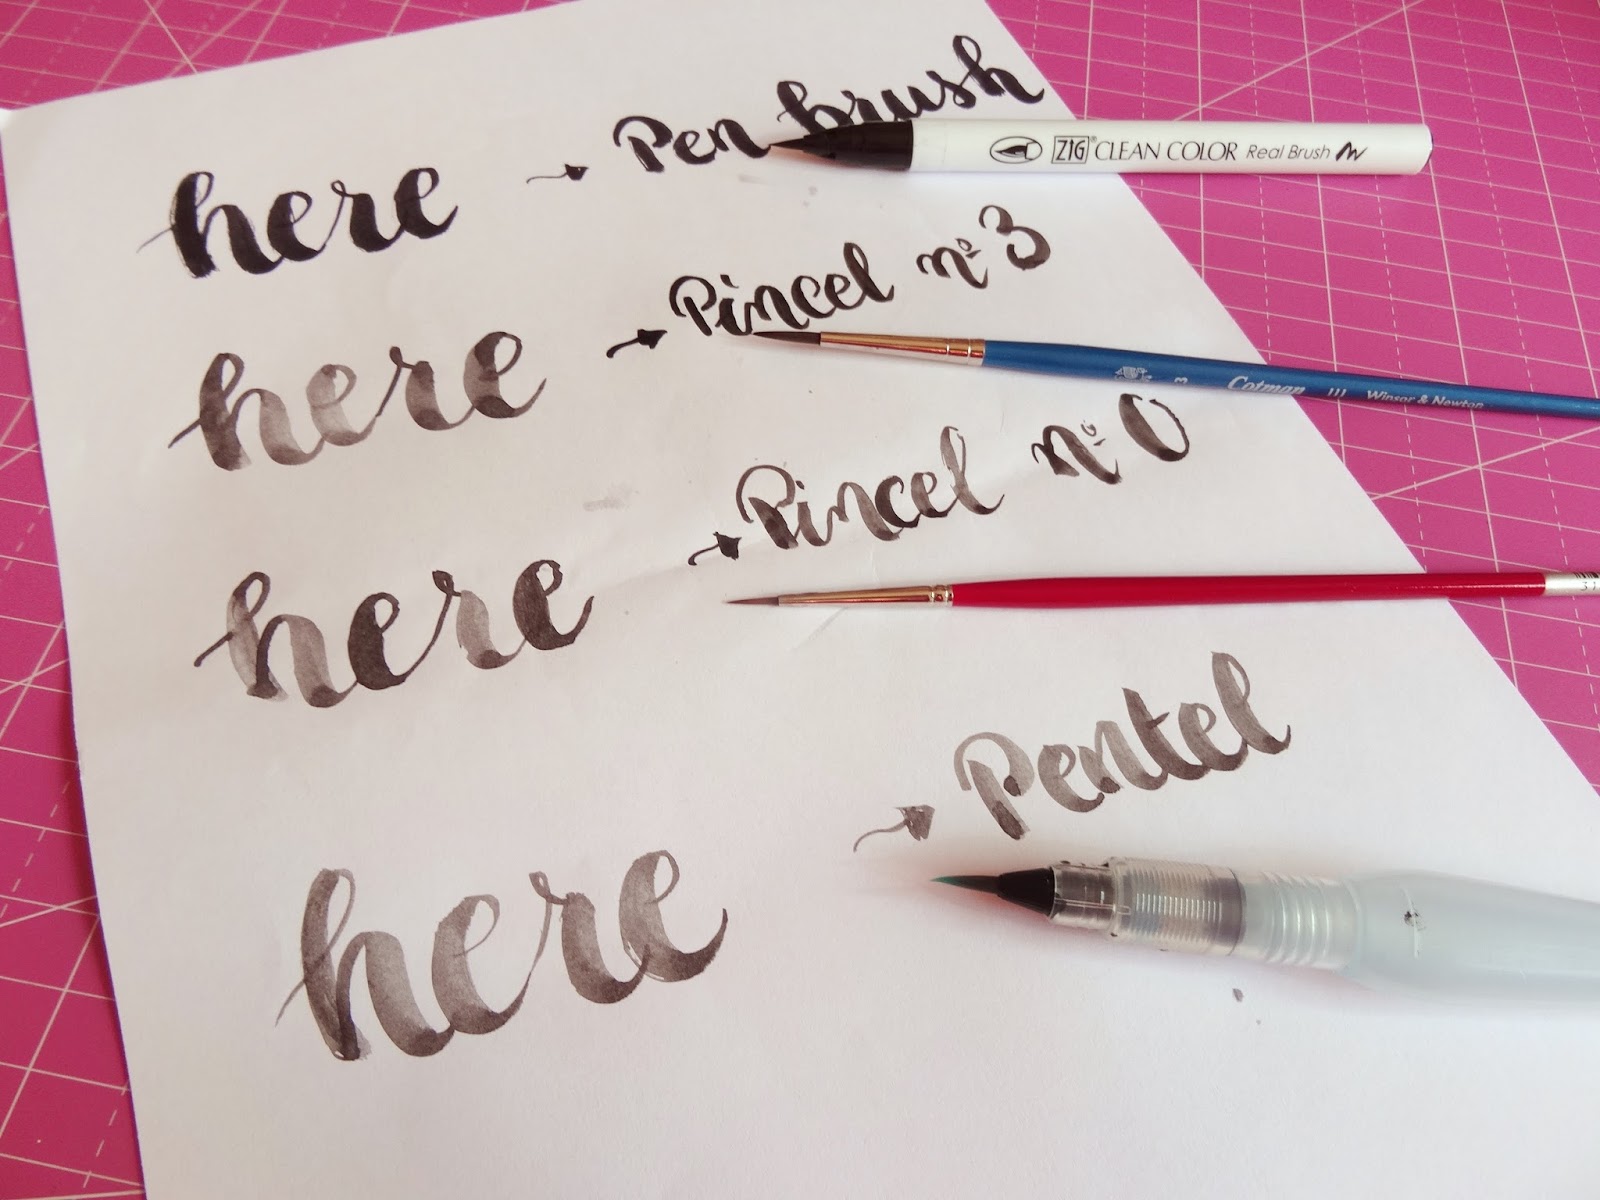 here → Pen brush
ZIG® CLEAN COLOR Real Brush
here → Pincel nº 3
3 Cotman 111 Winsor & Newton
here → Pincel nº 0
here → Pentel